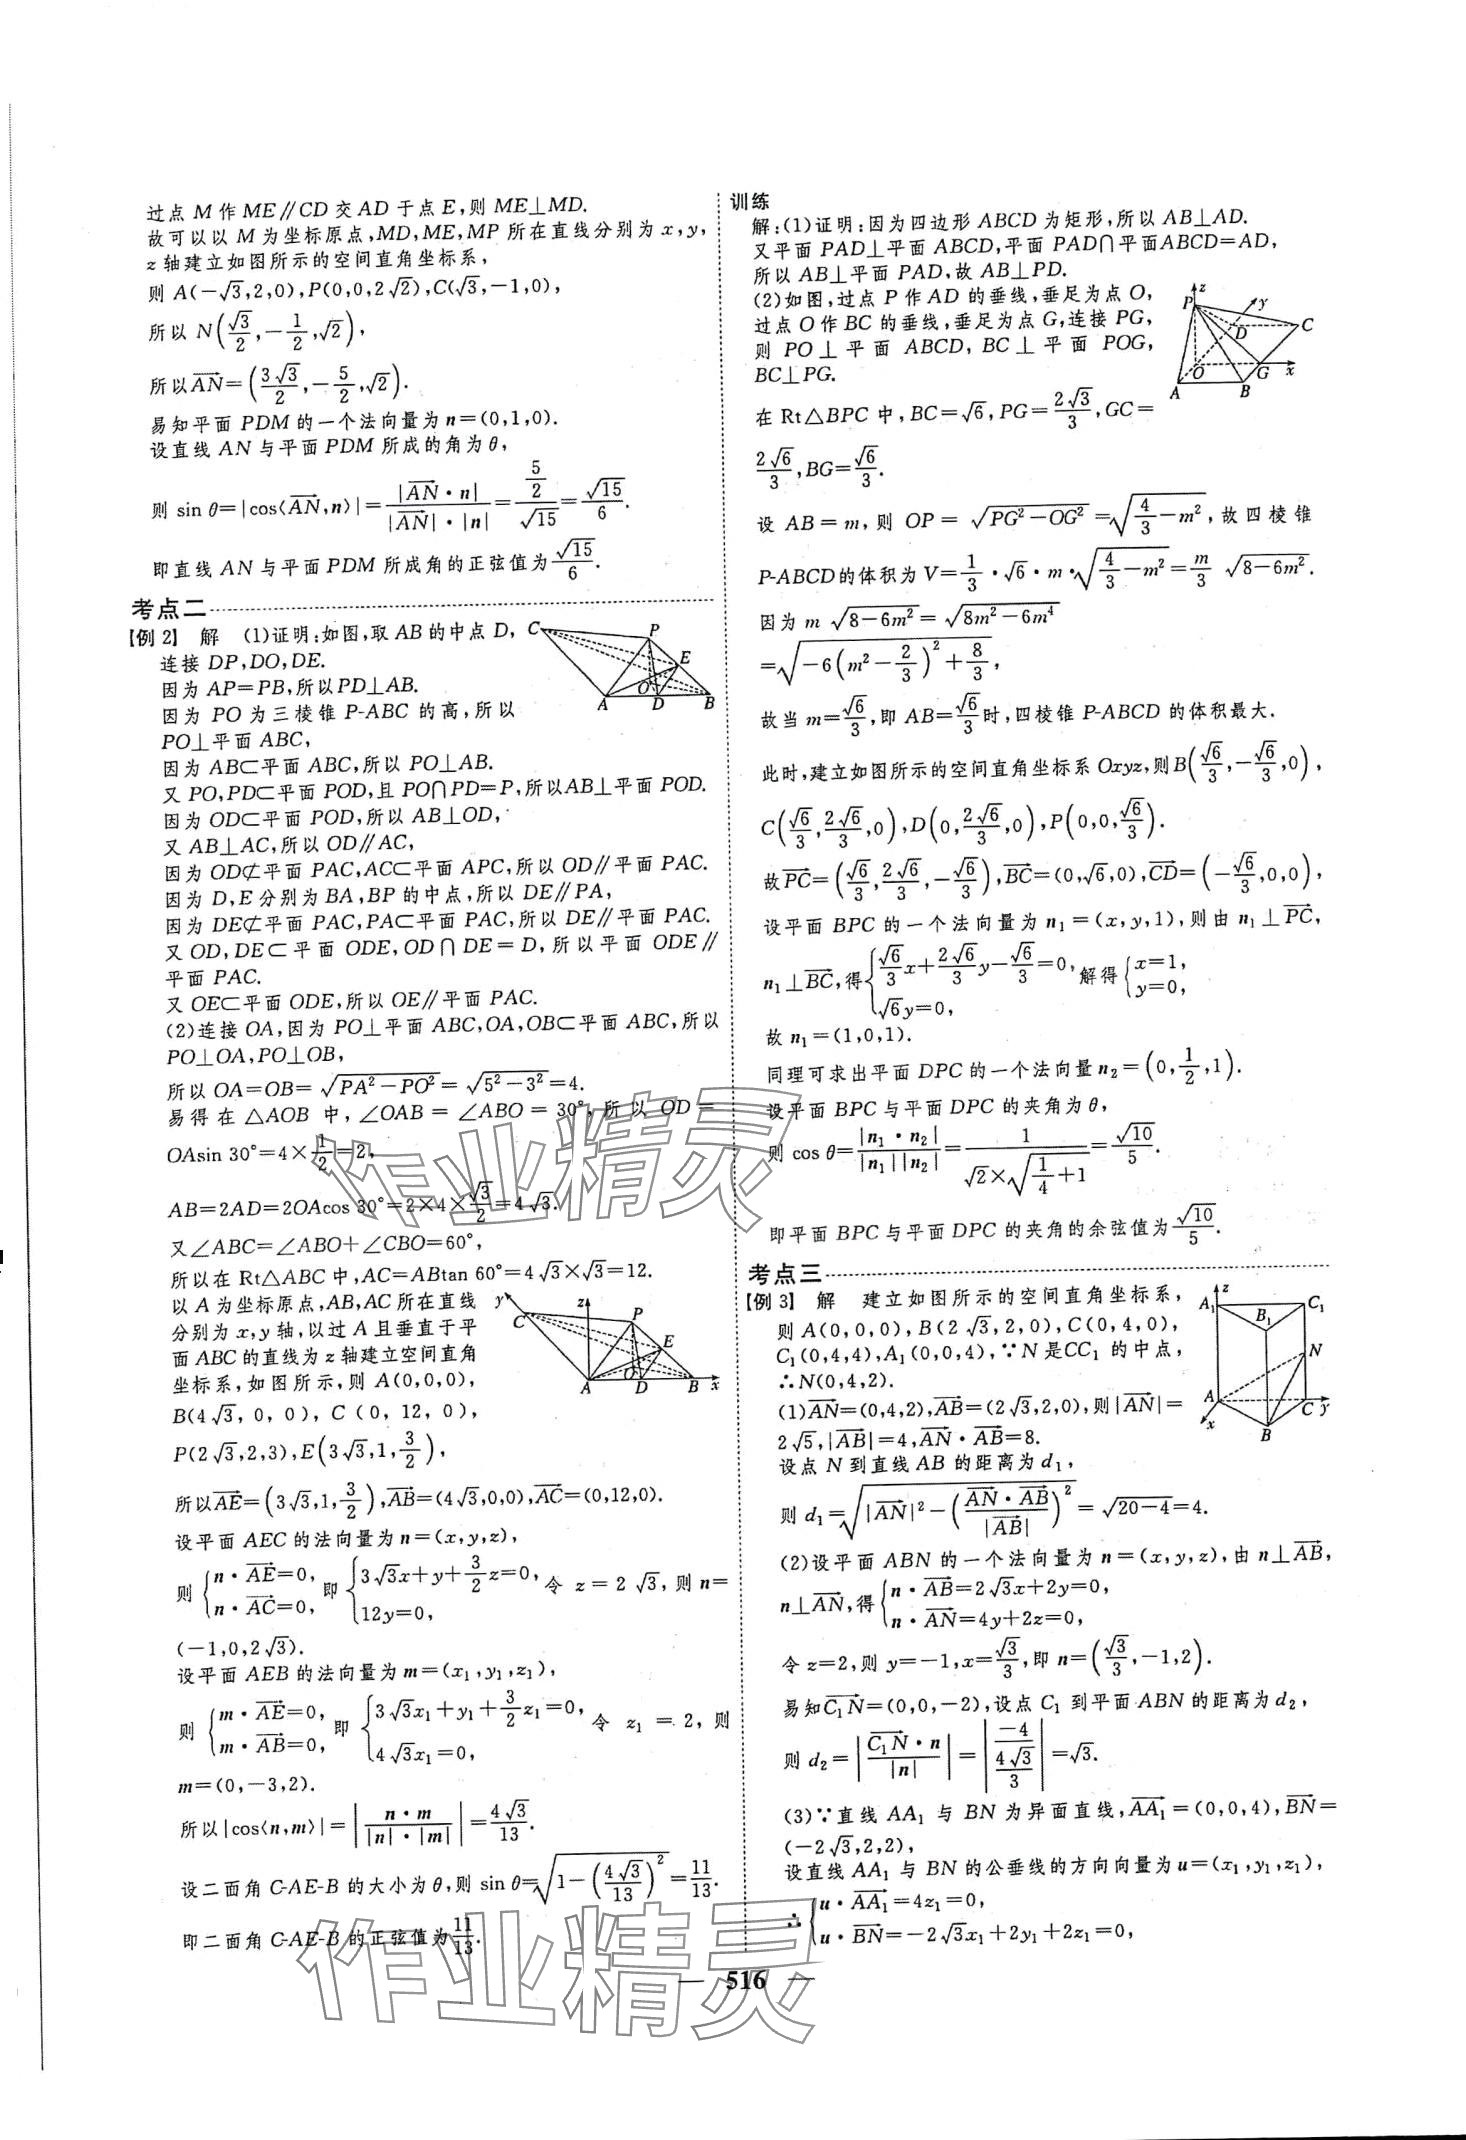 过点 M 作 ME∥CD 交 AD 于点 E,则 ME⊥MD.
故可以以 M 为坐标原点,MD,ME,MP 所在直线分别为 x,y,
z 轴建立如图所示的空间直角坐标系,
则 A(-√3,2,0),P(0,0,2√2),C(√3,-1,0),
所以 N(√3/2,-1/2,√2),
所以AN→=(3√3/2,-5/2,√2).
易知平面 PDM 的一个法向量为 n=(0,1,0).
设直线 AN 与平面 PDM 所成的角为 θ,
则 sin θ=|cos⟨AN→,n⟩|=|AN→·n|/(|AN→|·|n|)=(5/2)/√15=√15/6.
即直线 AN 与平面 PDM 所成角的正弦值为√15/6.
考点二
【例 2】 解 (1)证明:如图,取 AB 的中点 D,
连接 DP,DO,DE.
因为 AP=PB,所以PD⊥AB.
因为 PO 为三棱锥 P-ABC 的高,所以
PO⊥平面 ABC,
因为 AB⊂平面 ABC,所以 PO⊥AB.
又 PO,PD⊂平面 POD,且 PO∩PD=P,所以AB⊥平面 POD.
因为 OD⊂平面 POD,所以 AB⊥OD,
又 AB⊥AC,所以 OD∥AC,
因为 OD⊄平面 PAC,AC⊂平面 APC,所以 OD∥平面 PAC.
因为 D,E 分别为 BA,BP 的中点,所以 DE∥PA,
因为 DE⊄平面 PAC,PA⊂平面 PAC,所以 DE∥平面 PAC.
又 OD,DE⊂平面 ODE,OD∩DE=D,所以平面 ODE∥
平面 PAC.
又 OE⊂平面 ODE,所以 OE∥平面 PAC.
(2)连接 OA,因为 PO⊥平面 ABC,OA,OB⊂平面 ABC,所以
PO⊥OA,PO⊥OB,
所以 OA=OB=√(PA²-PO²)=√(5²-3²)=4.
易得在 △AOB 中,∠OAB=∠ABO=30°,所以 OD=
OAsin 30°=4×1/2=2,
AB=2AD=2OAcos 30°=2×4×√3/2=4√3.
又∠ABC=∠ABO+∠CBO=60°,
所以在 Rt△ABC 中,AC=ABtan 60°=4√3×√3=12.
以 A 为坐标原点,AB,AC 所在直线
分别为 x,y 轴,以过 A 且垂直于平
面 ABC 的直线为 z 轴建立空间直角
坐标系,如图所示,则 A(0,0,0),
B(4√3,0,0),C(0,12,0),
P(2√3,2,3),E(3√3,1,3/2),
所以AE→=(3√3,1,3/2),AB→=(4√3,0,0),AC→=(0,12,0).
设平面 AEC 的法向量为 n=(x,y,z),
则 {n·AE→=0, n·AC→=0, 即 {3√3x+y+3/2z=0, 12y=0, 令 z=2√3,则 n=
(-1,0,2√3).
设平面 AEB 的法向量为 m=(x₁,y₁,z₁),
则 {m·AE→=0, m·AB→=0, 即 {3√3x₁+y₁+3/2z₁=0, 4√3x₁=0, 令 z₁=2,则
m=(0,-3,2).
所以|cos⟨n,m⟩|=|n·m/(|n|·|m|)|=4√3/13.
设二面角 C-AE-B 的大小为 θ,则 sin θ=√(1-(4√3/13)²)=11/13.
即二面角 C-AE-B 的正弦值为11/13.
C P E A O D B
y z P C E A O D B x
训练
解:(1)证明:因为四边形 ABCD 为矩形,所以 AB⊥AD.
又平面 PAD⊥平面 ABCD,平面 PAD∩平面ABCD=AD,
所以 AB⊥平面 PAD,故 AB⊥PD.
(2)如图,过点 P 作 AD 的垂线,垂足为点 O,
过点 O 作 BC 的垂线,垂足为点 G,连接 PG,
则 PO⊥平面 ABCD,BC⊥平面 POG,
BC⊥PG.
z P y D C O G x A B
在 Rt△BPC 中,BC=√6,PG=2√3/3,GC=
2√6/3,BG=√6/3.
设 AB=m,则 OP=√(PG²-OG²)=√(4/3-m²),故四棱锥
P-ABCD的体积为 V=1/3·√6·m·√(4/3-m²)=m/3 √(8-6m²).
因为 m√(8-6m²)=√(8m²-6m⁴)
=√(-6(m²-2/3)²+8/3),
故当 m=√6/3,即 AB=√6/3时,四棱锥 P-ABCD 的体积最大.
此时,建立如图所示的空间直角坐标系 Oxyz,则B(√6/3,-√6/3,0),
C(√6/3,2√6/3,0),D(0,2√6/3,0),P(0,0,√6/3).
故PC→=(√6/3,2√6/3,-√6/3),BC→=(0,√6,0),CD→=(-√6/3,0,0),
设平面 BPC 的一个法向量为 n₁=(x,y,1),则由 n₁⊥PC→,
n₁⊥BC→,得{√6/3x+2√6/3y-√6/3=0, √6y=0, 解得{x=1, y=0,
故 n₁=(1,0,1).
同理可求出平面 DPC 的一个法向量 n₂=(0,1/2,1).
设平面 BPC 与平面 DPC 的夹角为 θ,
则 cos θ=|n₁·n₂|/(|n₁||n₂|)=1/(√2×√(1/4+1))=√10/5.
即平面 BPC 与平面 DPC 的夹角的余弦值为√10/5.
考点三
【例 3】 解 建立如图所示的空间直角坐标系,
则 A(0,0,0),B(2√3,2,0),C(0,4,0),
C₁(0,4,4),A₁(0,0,4),∵N 是CC₁ 的中点,
∴N(0,4,2).
(1)AN→=(0,4,2),AB→=(2√3,2,0),则|AN→|=
2√5,|AB→|=4,AN→·AB→=8.
z A₁ B₁ C₁ N A C y x B
设点 N 到直线 AB 的距离为 d₁,
则 d₁=√(|AN→|²-(AN→·AB→/|AB→|)²)=√(20-4)=4.
(2)设平面 ABN 的一个法向量为 n=(x,y,z),由 n⊥AB→,
n⊥AN→,得{n·AB→=2√3x+2y=0, n·AN→=4y+2z=0,
令 z=2,则 y=-1,x=√3/3,即 n=(√3/3,-1,2).
易知C₁N→=(0,0,-2),设点 C₁ 到平面 ABN 的距离为 d₂,
则 d₂=|C₁N→·n/|n||=|-4/(4√3/3)|=√3.
(3)∵直线 AA₁ 与 BN 为异面直线,AA₁→=(0,0,4),BN→=
(-2√3,2,2),
设直线 AA₁ 与 BN 的公垂线的方向向量为 u=(x₁,y₁,z₁),
∴{u·AA₁→=4z₁=0, u·BN→=-2√3x₁+2y₁+2z₁=0,
— 516 —
作业精灵
作业精灵